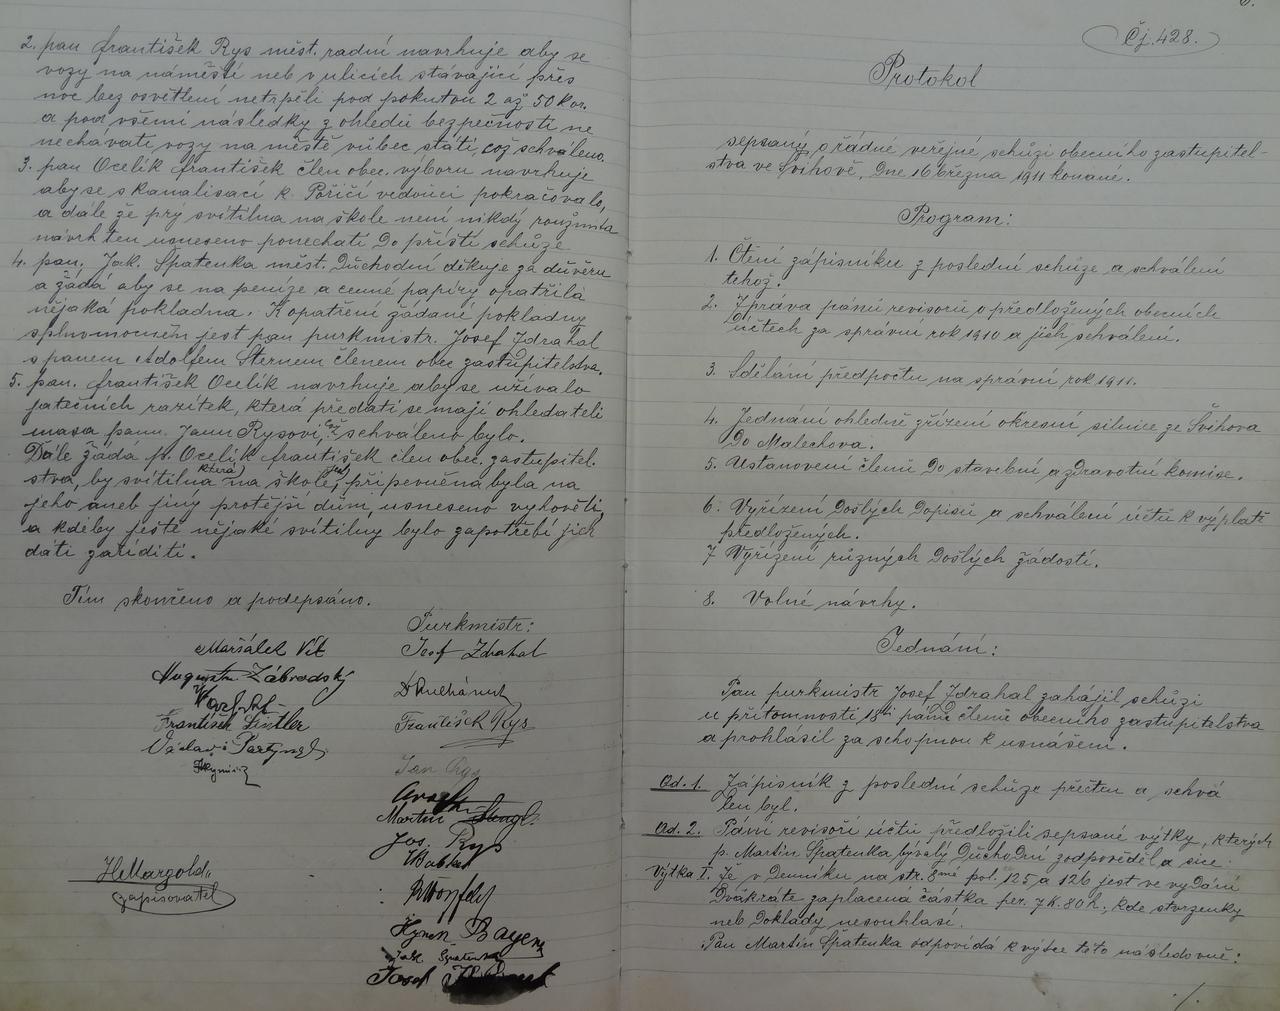 2. pan František Rys měst. radní navrhuje aby se
vozy na náměstí neb v ulicích stávající přes
noc bez osvětlení netrpěli pod pokutou 2 až 50 kor.
a pod všemi následky z ohledů bezpečnosti ne
nechávati vozy na městě vůbec státi, což schváleno.
3. pan Ocelík František člen obec. výboru navrhuje
aby se s kanalisací k Poříčí vedoucí pokračovalo,
a dále že prý svítilna na škole není nikdý rozžnuta
návrh ten usneseno ponechati do příští schůze
4. pan. Jak. Špatenka měst. Důchodní děkuje za důvěru
a žádá aby se na peníze a cenné papíry opatřila
nějaká pokladna. K opatření žádané pokladny
splnomocněn jest pan purkmistr. Josef Zdrahal
s panem Adolfem Sternem členem obec zastupitelstva.
5. pan. František Ocelík navrhuje aby se užívalo
jatečních razítek, která předati se mají ohledateli
masa panu. Janu Rysovi, což schváleno bylo.
Dále žádá p. Ocelík František člen obec. zastupitel.
stva, by svítilna která na škole jest, připevněna byla na
jeho aneb jiný protější dům, usneseno vyhověti,
a kdeby ještě nějaké svítilny bylo zapotřebí jich
dáti zaříditi.
Tím skončeno a podepsáno.
Purkmistr:
Maršálek Vít
Josef Zdrahal
Augustin Zábrodský
František Rys
František
Václav
Jan Rys
Martin Stengl.
Jos. Rys
H. Margold
zapisovatel
Hynek
Jak. Špatenka
Josef
Čj. 428.
Protokol
sepsaný o řádné veřejné schůzi obecního zastupitel-
stva ve Švihově, Dne 16 března 1911 konané.
Program:
1. Čtení zápisníku z poslední schůze a schválení
tehož.
2. Zpráva pánů revisorů o předložených obecních
účtech za správní rok 1910 a jich schválení.
3. Sdělání předpočtu na správní rok 1911.
4. Jednání ohledně zřízení okresní silnice ze Švihova
Do Malechova.
5. Ustanovení členů Do stavební a zdravotní komise.
6. Vyřízení Došlých Dopisů a schválení účtů k výplatě
předložených.
7 Vyřízení různých Došlých žádostí.
8. Volné návrhy.
Jednání:
Pan purkmistr Josef Zdrahal zahájil schůzi
u přítomnosti 18ti pánů členů obecního zastupitelstva
a prohlásil za schopnou k usnášení.
Ad. 1. Zápisník z poslední schůze přečten a schvá
len byl.
Ad. 2. Páni revisoři účtů předložili sepsané výtky, kterých
p. Martin Špatenka bývalý Důchodní zodpověděl a sice:
Výtka I. Že v Denníku na str. 8mé pol. 125 a 126 jest ve vydání
Dvákráte zaplacená částka per. 7 K. 80 h., kde stvrzenky
neb Doklady nesouhlasí.
Pan Martin Špatenka odpovídá k výtce této následovně:
./.